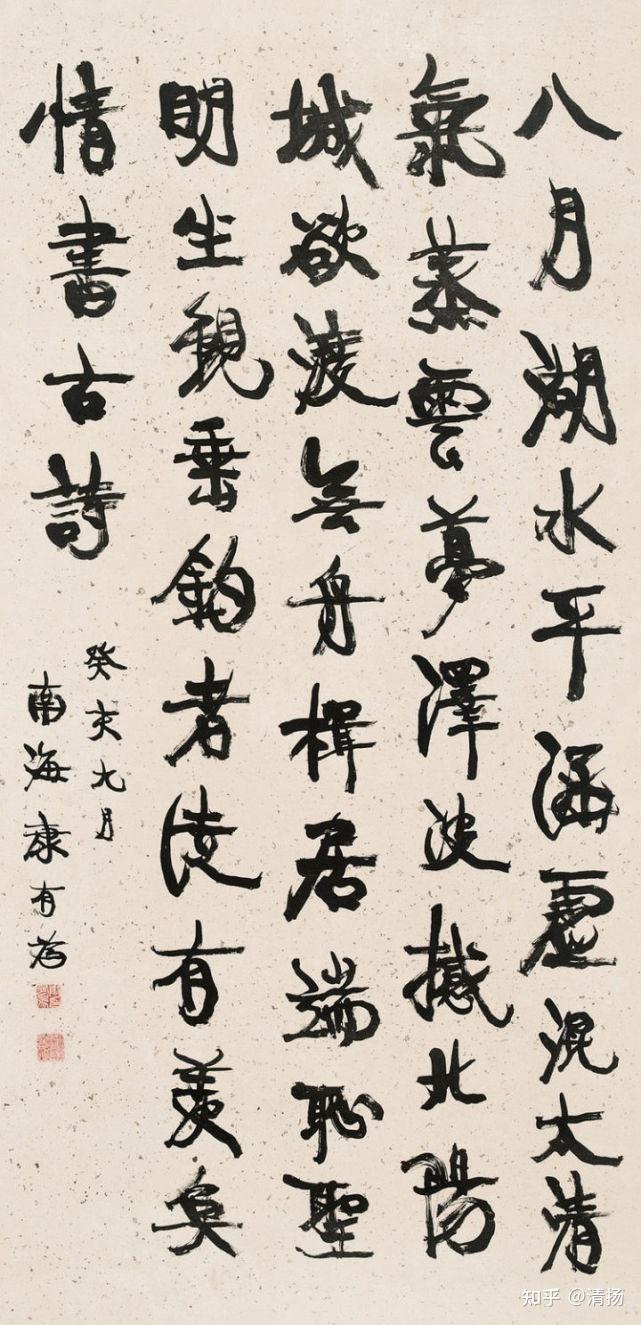 八月湖水平涵虛混太清
氣蒸雲夢澤波撼北陽
城欲渡無舟楫居端恥聖
明坐觀垂釣者徒有羨魚
情書古詩
癸亥九月
南海康有為
知乎 @清扬